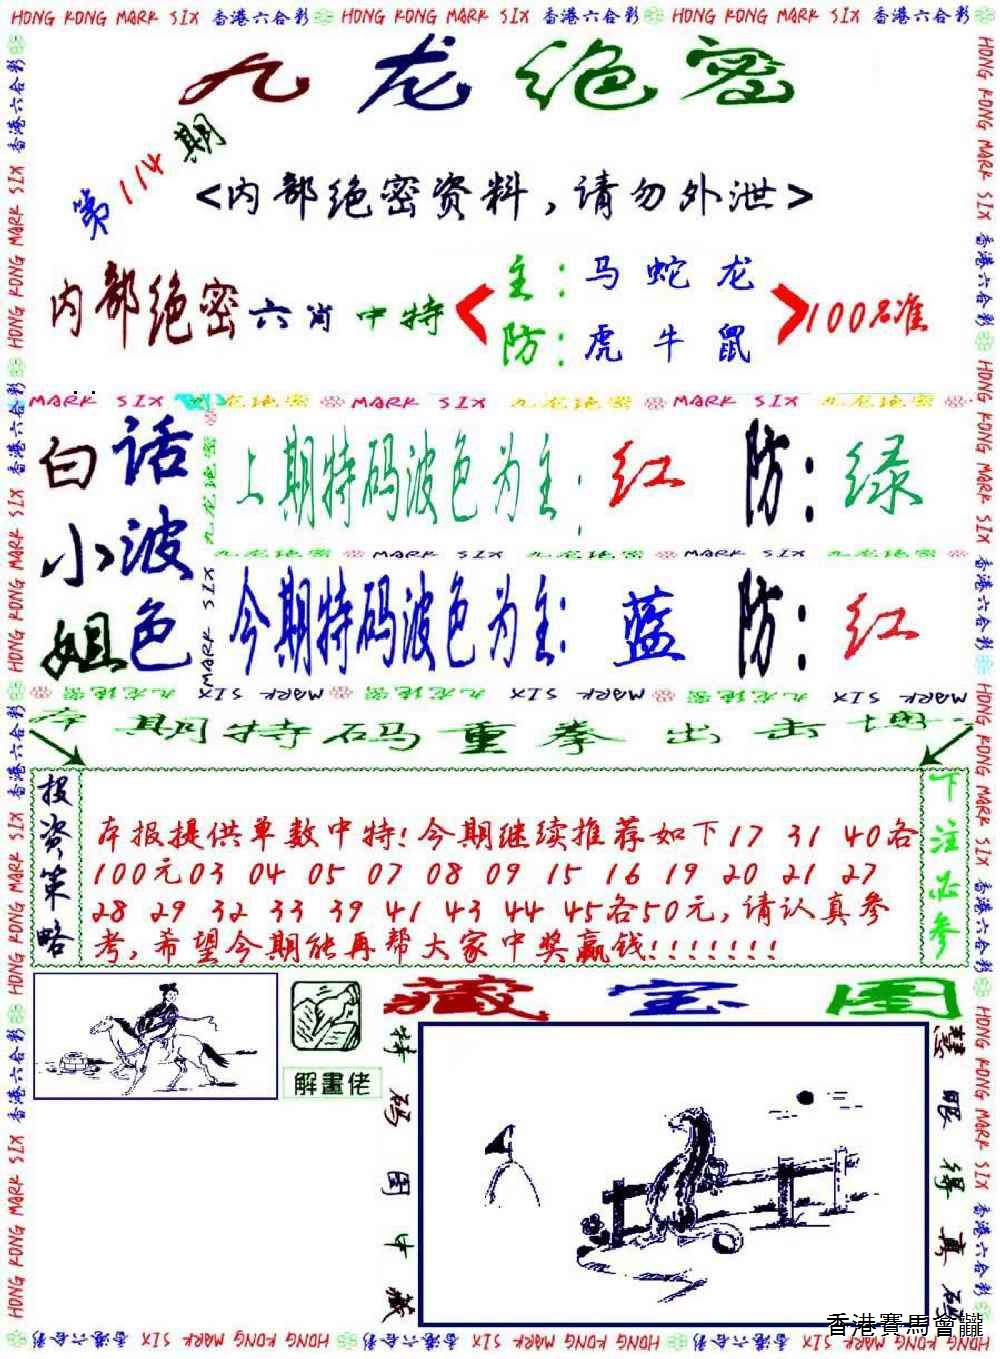 HONG KONG MARK SIX 香港六合彩 HONG KONG MARK SIX 香港六合彩 HONG KONG MARK SIX 香港六合彩
九龙绝密
第114期
<内部绝密资料,请勿外泄>
内部绝密六肖中特
主:马蛇龙
防:虎牛鼠
100%准
MARK SIX 九龙绝密 MARK SIX 九龙绝密 MARK SIX 九龙绝密
白小姐
话波色
上期特码波色为主:红 防:绿
九龙绝密 MARK SIX 九龙绝密 MARK SIX 九龙绝密
今期特码波色为主:蓝 防:红
本期特码重拳出击
投资策略
本报提供单数中特!今期继续推荐如下17 31 40各
100元03 04 05 07 08 09 15 16 19 20 21 27
28 29 32 33 39 41 43 44 45各50元,请认真参
考,希望今期能再帮大家中奖赢钱!!!!!!!
下注必参
藏宝图
解畫佬
特码图中藏
慧眼得真码
香港賽馬會
HONG KONG MARK SIX 香港六合彩 HONG KONG MARK SIX 香港六合彩 HONG KONG MARK SIX 香港六合彩